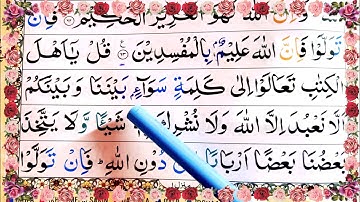 وَاِنَّ اللّٰهَ لَهُوَ الْعَزِیْزُ الْحَكِیْمُ ۶۲ فَاِنْ
تَوَلَّوْا فَاِنَّ اللّٰهَ عَلِیْمٌۢ بِالْمُفْسِدِیْنَ ۶۳ قُلْ یٰۤاَهْلَ
الْكِتٰبِ تَعَالَوْا اِلٰی كَلِمَةٍ سَوَآءٍۭ بَیْنَنَا وَبَیْنَكُمْ
اَلَّا نَعْبُدَ اِلَّا اللّٰهَ وَلَا نُشْرِكَ شَیْـًٔا وَّلَا یَتَّخِذَ
بَعْضُنَا بَعْضًا اَرْبَابًا دُوْنِ اللّٰهِؕ فَاِنْ تَوَلَّوْا